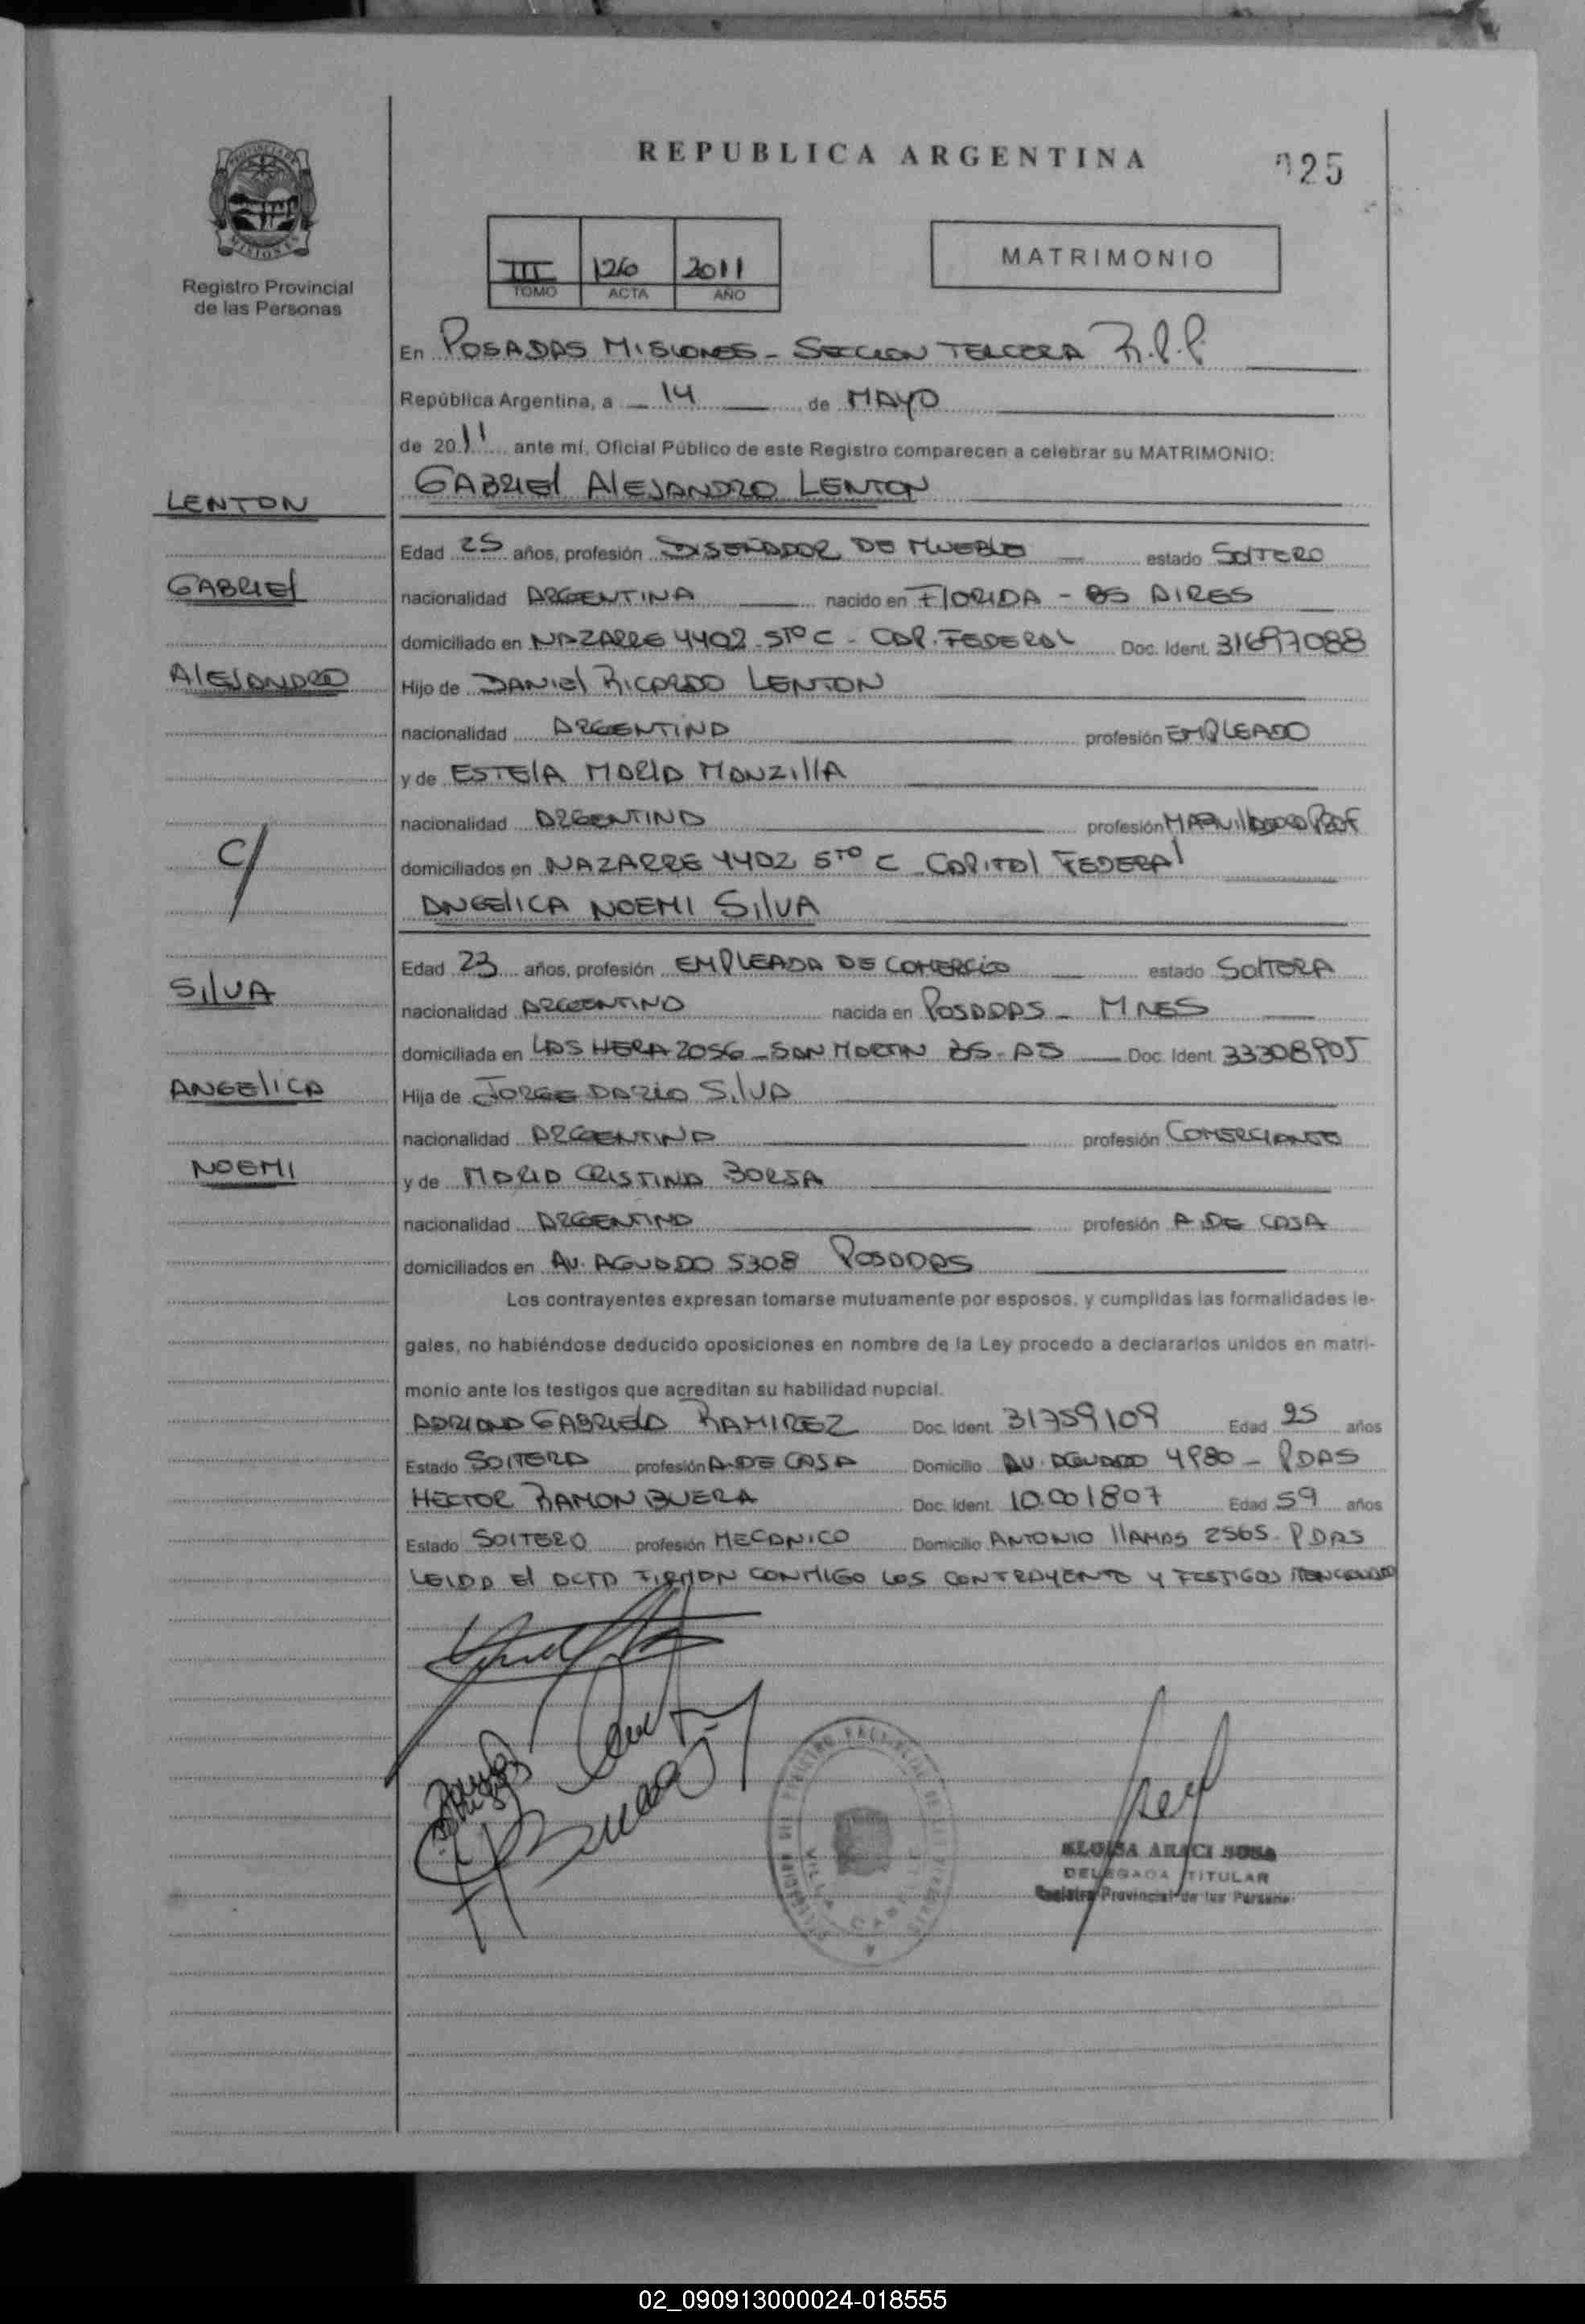 REPUBLICA ARGENTINA
025
PROVINCIA DE
MISIONES
Registro Provincial
de las Personas
III 126 2011
TOMO ACTA AÑO
MATRIMONIO
En POSADAS MISIONES - SECCION TERCERA R.P.P.
República Argentina, a 14 de MAYO
de 2011 ante mí, Oficial Público de este Registro comparecen a celebrar su MATRIMONIO:
LENTON
GABRIEL ALEJANDRO LENTON
Edad 25 años, profesión DISEÑADOR DE MUEBLE estado SOLTERO
GABRIEL
nacionalidad ARGENTINA nacido en FLORIDA - BS AIRES
domiciliado en NAZARRE 4402 - 5TO C - CAP. FEDERAL Doc. Ident. 31697088
ALEJANDRO
Hijo de DANIEL RICARDO LENTON
nacionalidad ARGENTINA profesión EMPLEADO
y de ESTELA MARIA MANZILLA
nacionalidad ARGENTINA profesión PROF
C/
domiciliados en NAZARRE 4402 5TO C CAPITAL FEDERAL
ANGELICA NOEMI SILVA
Edad 23 años, profesión EMPLEADA DE COMERCIO estado SOLTERA
SILVA
nacionalidad ARGENTINA nacida en POSADAS - MNES
domiciliada en LAS HERA 2056 - SAN MARTIN BS-AS Doc. Ident. 33308905
ANGELICA
Hija de JORGE DARIO SILVA
nacionalidad ARGENTINA profesión COMERCIANTE
NOEMI
y de MARIA CRISTINA BORSA
nacionalidad ARGENTINA profesión A DE CASA
domiciliados en AV. AGUADO 5308 POSADAS
Los contrayentes expresan tomarse mutuamente por esposos, y cumplidas las formalidades le-
gales, no habiéndose deducido oposiciones en nombre de la Ley procedo a declararlos unidos en matri-
monio ante los testigos que acreditan su habilidad nupcial.
ADRIANA GABRIELA RAMIREZ Doc. Ident. 31759109 Edad 25 años
Estado SOLTERA profesión A-DE CASA Domicilio AV. AGUADO 4980 - PDAS
HECTOR RAMON BUERA Doc. Ident. 10.001807 Edad 59 años
Estado SOLTERO profesión MECANICO Domicilio ANTONIO LLAMAS 2565 - PDAS
LEIDA EL ACTA FIRMAN CONMIGO LOS CONTRAYENTE Y TESTIGOS MENCIONADO
ELOISA ARACI SOSA
DELEGADA TITULAR
Registro Provincial de las Persona
02_090913000024-018555